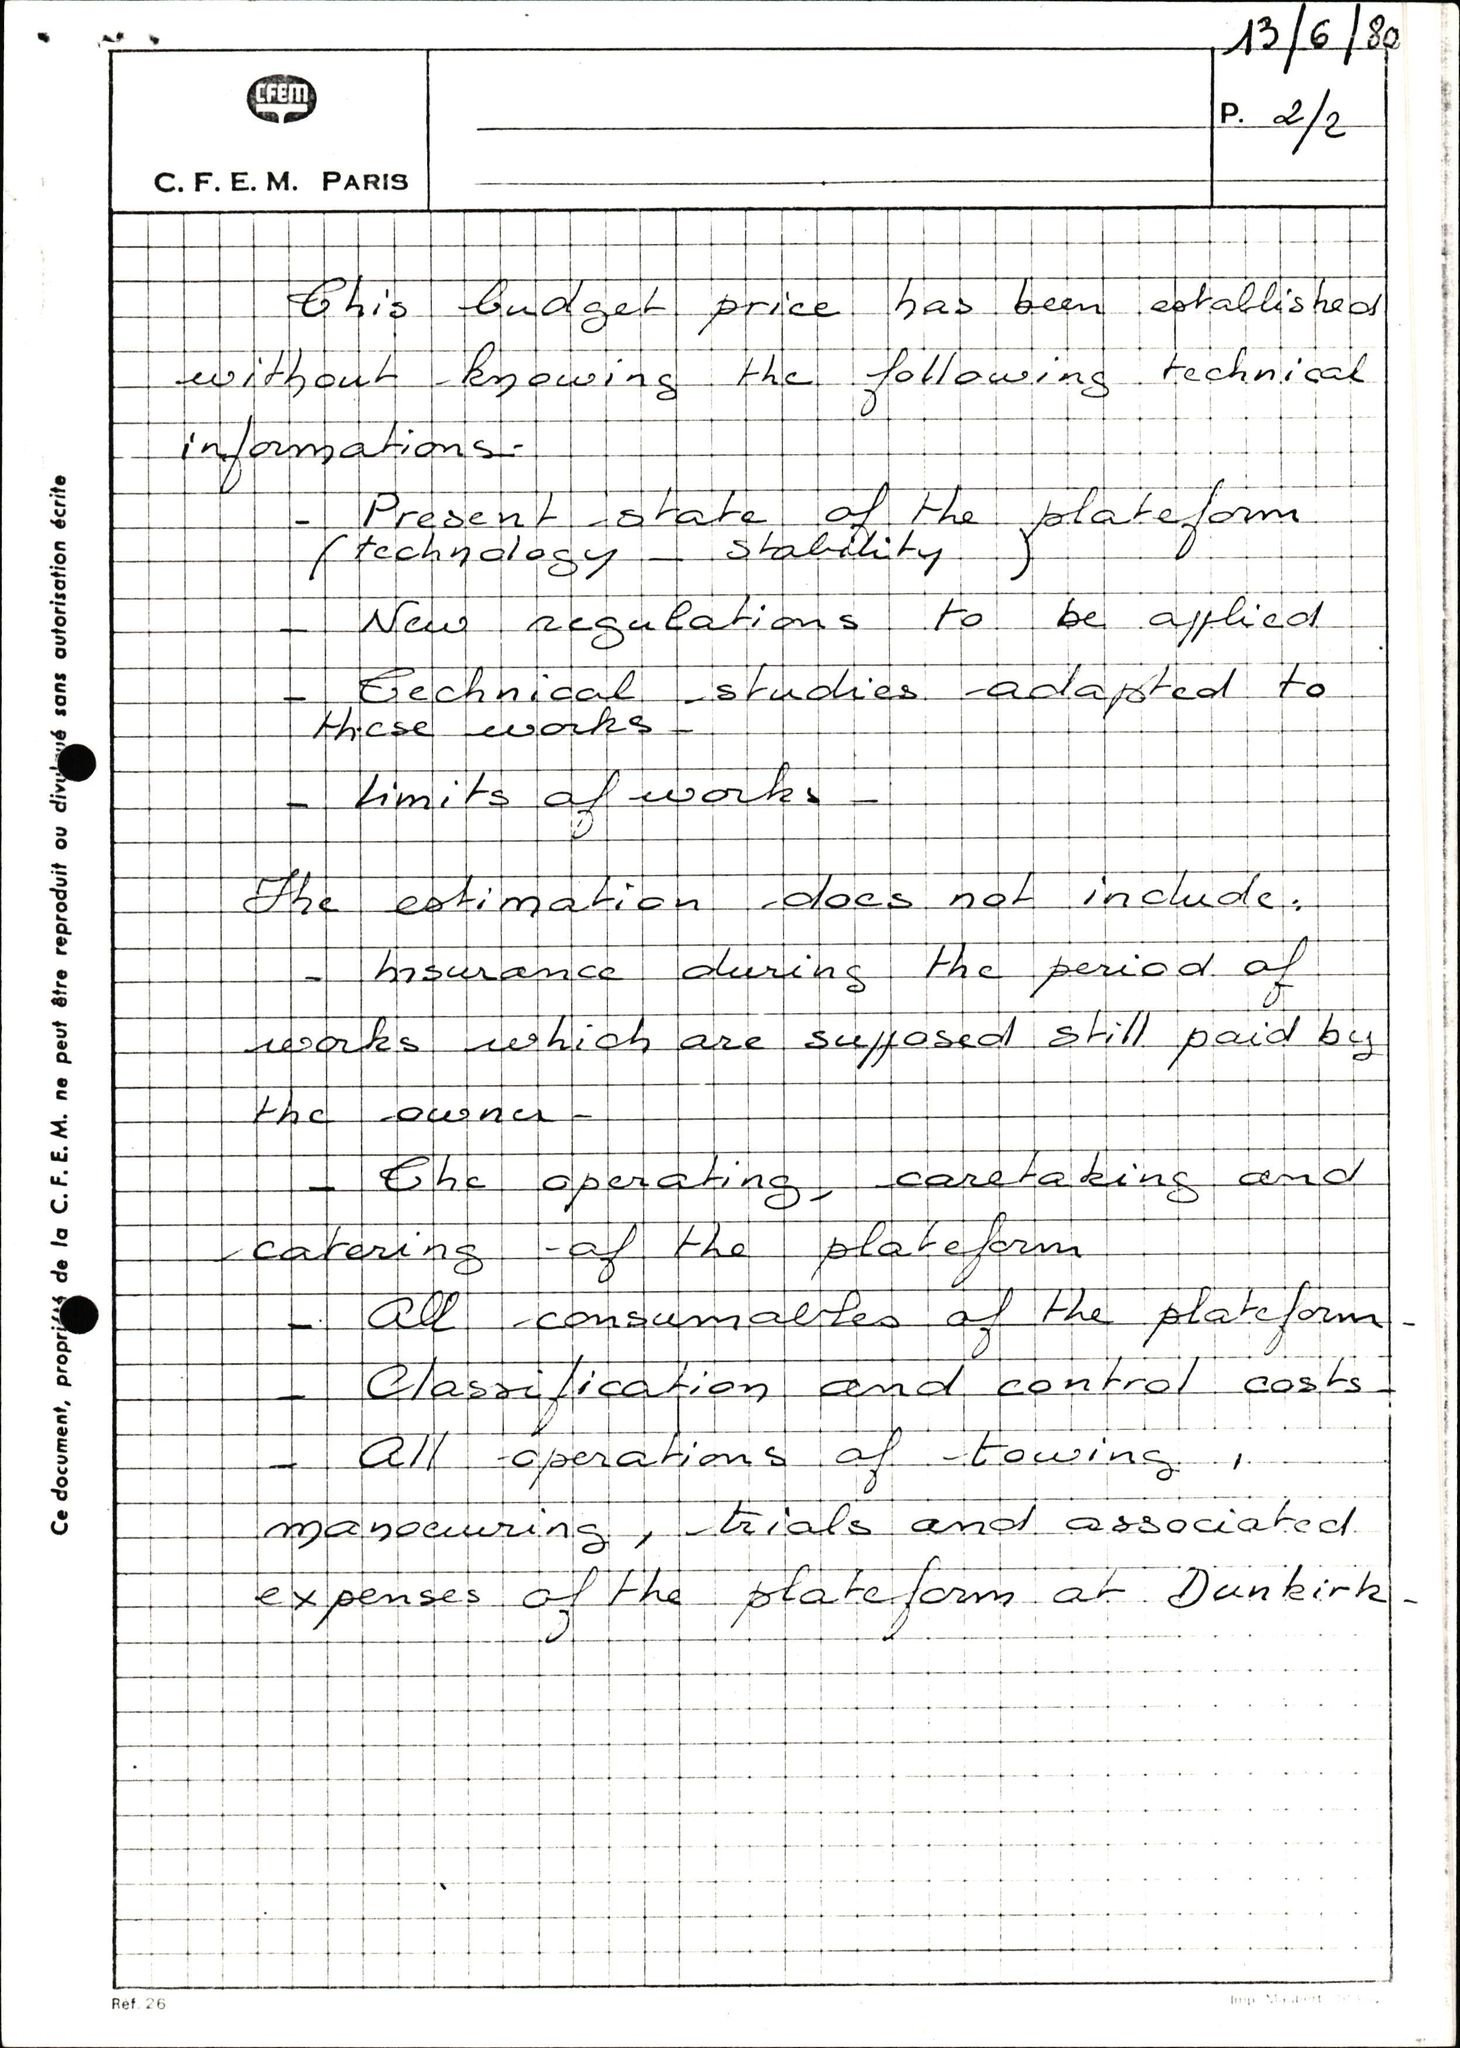 13/6/80
CFEM
P. 2/2
C. F. E. M. PARIS
This budget price has been established
without knowing the following technical
informations-
- Present state of the plateform
(technology - stability)
- New regulations to be applied
- Technical studies adapted to
these works-
- Limits of works-
The estimation does not include.
- Insurance during the period of
works which are supposed still paid by
the owner-
- The operating, caretaking and
catering of the plateform
- All consumables of the plateform-
- Classification and control costs-
- All operations of towing,
manoeuvring, trials and associated
expenses of the plateform at Dunkirk-
Ce document, propriété de la C. F. E. M. ne peut être reproduit ou divulgué sans autorisation écrite
Ref. 26